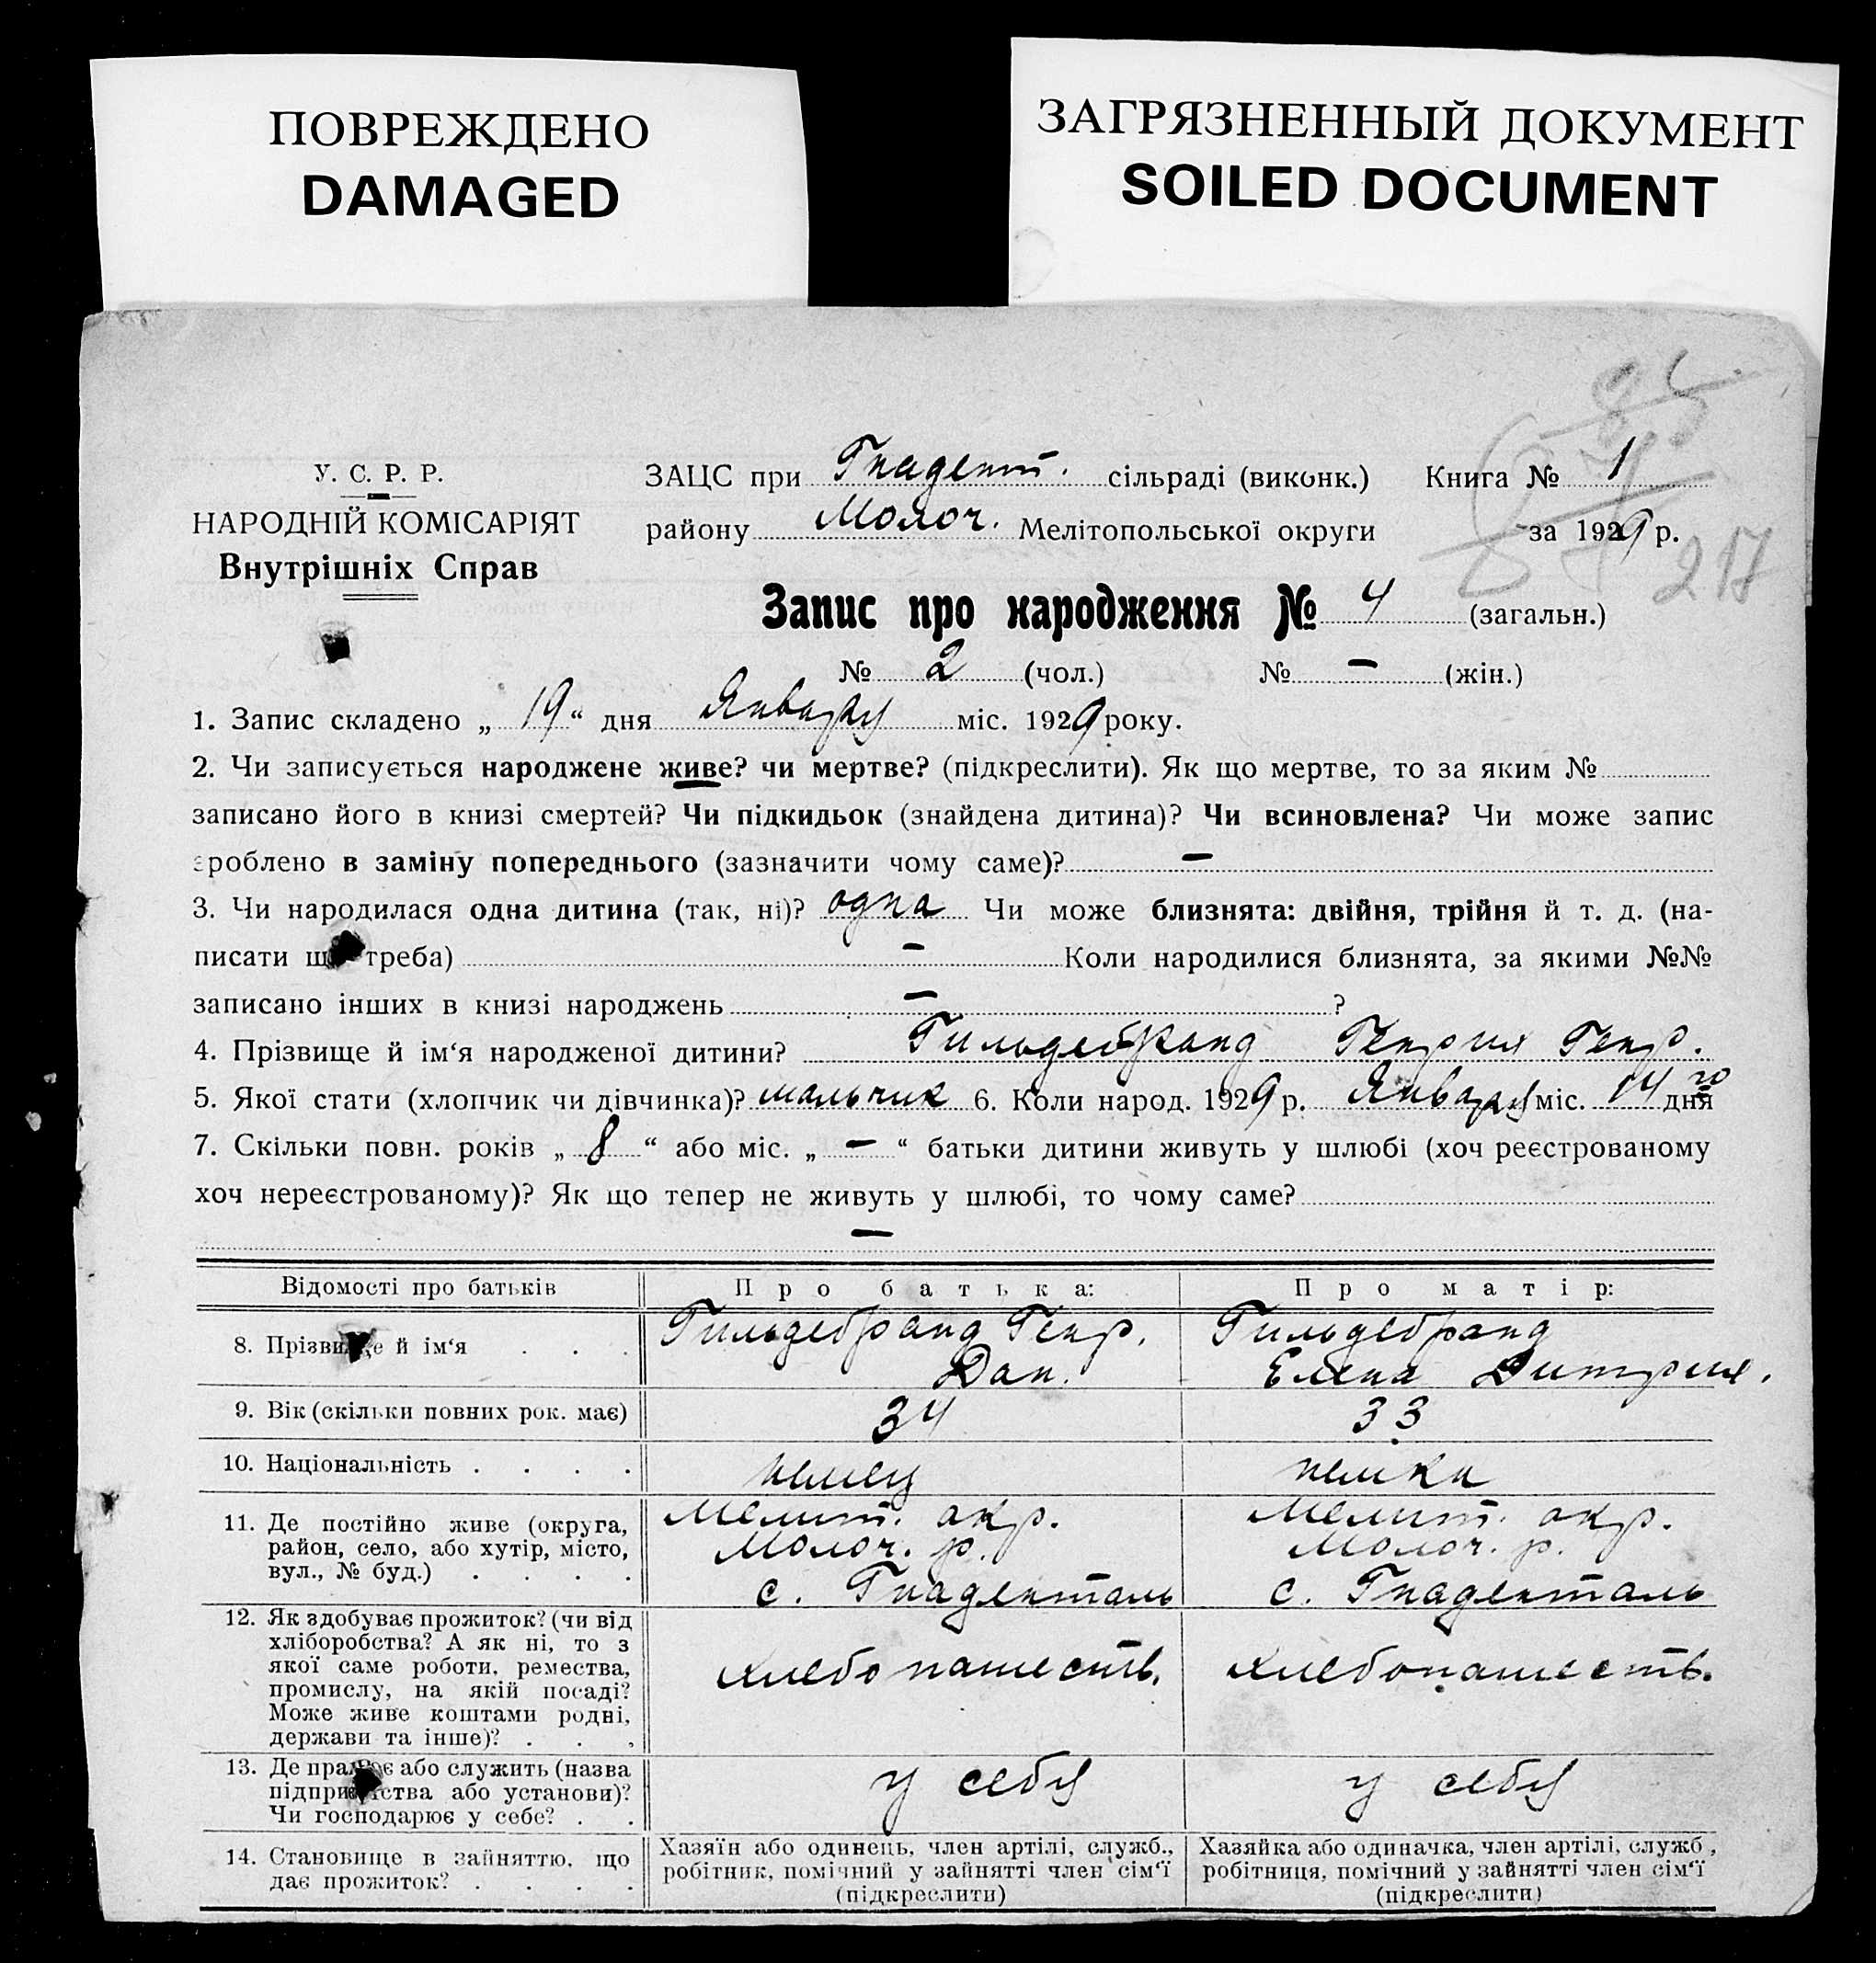 ПОВРЕЖДЕНО
DAMAGED
ЗАГРЯЗНЕННЫЙ ДОКУМЕНТ
SOILED DOCUMENT
У. С. Р. Р.
НАРОДНІЙ КОМІСАРІЯТ
Внутрішніх Справ
ЗАЦС при Гнадент. сільраді (виконк.) Книга № 1
району Молоч. Мелітопольської округи за 1929 р.
217
Запис про народження № 4 (загальн.)
№ 2 (чол.) № — (жін.)
1. Запис складено „ 19 “ дня Января міс. 1929 року.
2. Чи записується народжене живе? чи мертве? (підкреслити). Як що мертве, то за яким №
записано його в книзі смертей? Чи підкидьок (знайдена дитина)? Чи всиновлена? Чи може запис
зроблено в заміну попереднього (зазначити чому саме)? —
3. Чи народилася одна дитина (так, ні)? одна Чи може близнята: двійня, трійня й т. д. (на-
писати що треба) — Коли народилися близнята, за якими №№
записано інших в книзі народжень — ?
4. Прізвище й ім‘я народженої дитини? Гильдебранд Генрих Генр.
5. Якої стати (хлопчик чи дівчинка)? мальчик 6. Коли народ. 1929 р. Января міс. 14го дня
7. Скільки повн. років „ 8 “ або міс. „ — “ батьки дитини живуть у шлюбі (хоч реєстрованому
хоч нереєстрованому)? Як що тепер не живуть у шлюбі, то чому саме?
—
Відомості про батьків Про батька: Про матір:
8. Прізвище й ім‘я . . . Гильдебранд Генр. Дан. Гильдебранд Елена Дитрих.
9. Вік (скільки повних рок. має) 34 33
10. Національність . . . . немец немка
11. Де постійно живе (округа, Мелит. окр. Мелит. окр.
район, село, або хутір, місто, Молоч. р. Молоч. р.
вул., № буд.) . . . . с. Гнаденталь с. Гнаденталь
12. Як здобуває прожиток? (чи від
хліборобства? А як ні, то з
якої саме роботи, ремества, хлебопашеств. хлебопашеств.
промислу, на якій посаді?
Може живе коштами родні,
держави та інше)? . . .
13. Де працює або служить (назва
підприємства або установи)? у себя у себя
Чи господарює у себе? . .
14. Становище в зайняттю, що
дає прожиток? . . . .
Хазяїн або одинець, член артілі, служб.,
робітник, помічний у зайнятті член сім‘ї
(підкреслити)
Хазяйка або одиначка, член артілі, служб.,
робітниця, помічний у зайнятті член сім‘ї
(підкреслити)